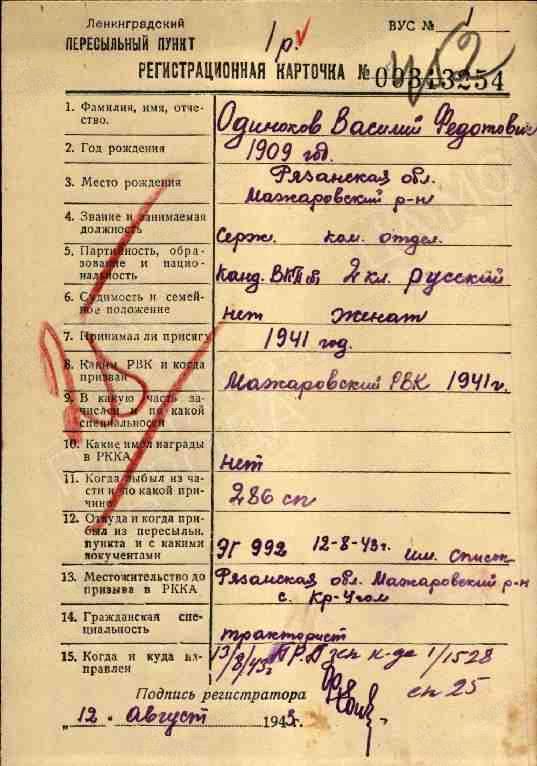 Ленинградский
ПЕРЕСЫЛЬНЫЙ ПУНКТ
1 р.
ВУС № 1
РЕГИСТРАЦИОННАЯ КАРТОЧКА № 00343254
1. Фамилия, имя, отче-
ство.
Одиноков Василий Федотович
2. Год рождения
1909 год.
3. Место рождения
Рязанская обл.
Мажаровский р-н
4. Звание и занимаемая
должность
Серж. ком. отдел.
5. Партийность, обра-
зование и нацио-
нальность
Канд. ВКПб 2 кл. русский
6. Судимость и семей-
ное положение
нет женат
7. Принимал ли присягу
1941 год.
8. Каким РВК и когда
призван
Мажаровский РВК 1941 г.
9. В какую часть за-
числен и по какой
специальности
10. Какие имел награды
в РККА
нет
11. Когда выбыл из ча-
сти и по какой при-
чине
286 сп
12. Откуда и когда при-
был из пересыльн.
пункта и с какими
документами
ЭГ 992 12-8-43г. им. список
13. Местожительство до
призыва в РККА
Рязанская обл. Мажаровский р-н
с. Кр-Угол
14. Гражданская спе-
циальность
тракторист
15. Когда и куда на-
правлен
13/8/43г зсп к-де 1/1528
сп 25
Подпись регистратора
„12 Август 1943г.